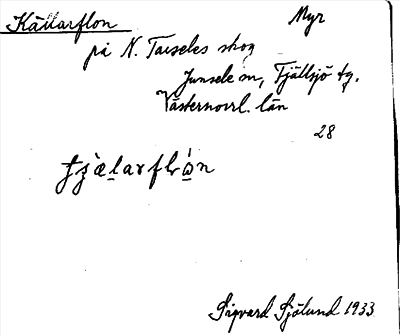 Källarflon
Myr
på N. Tarseles skog
Junsele sn, Fjällsjö tg.
Västernorrl. län
28
Sigvard Sjölund 1933